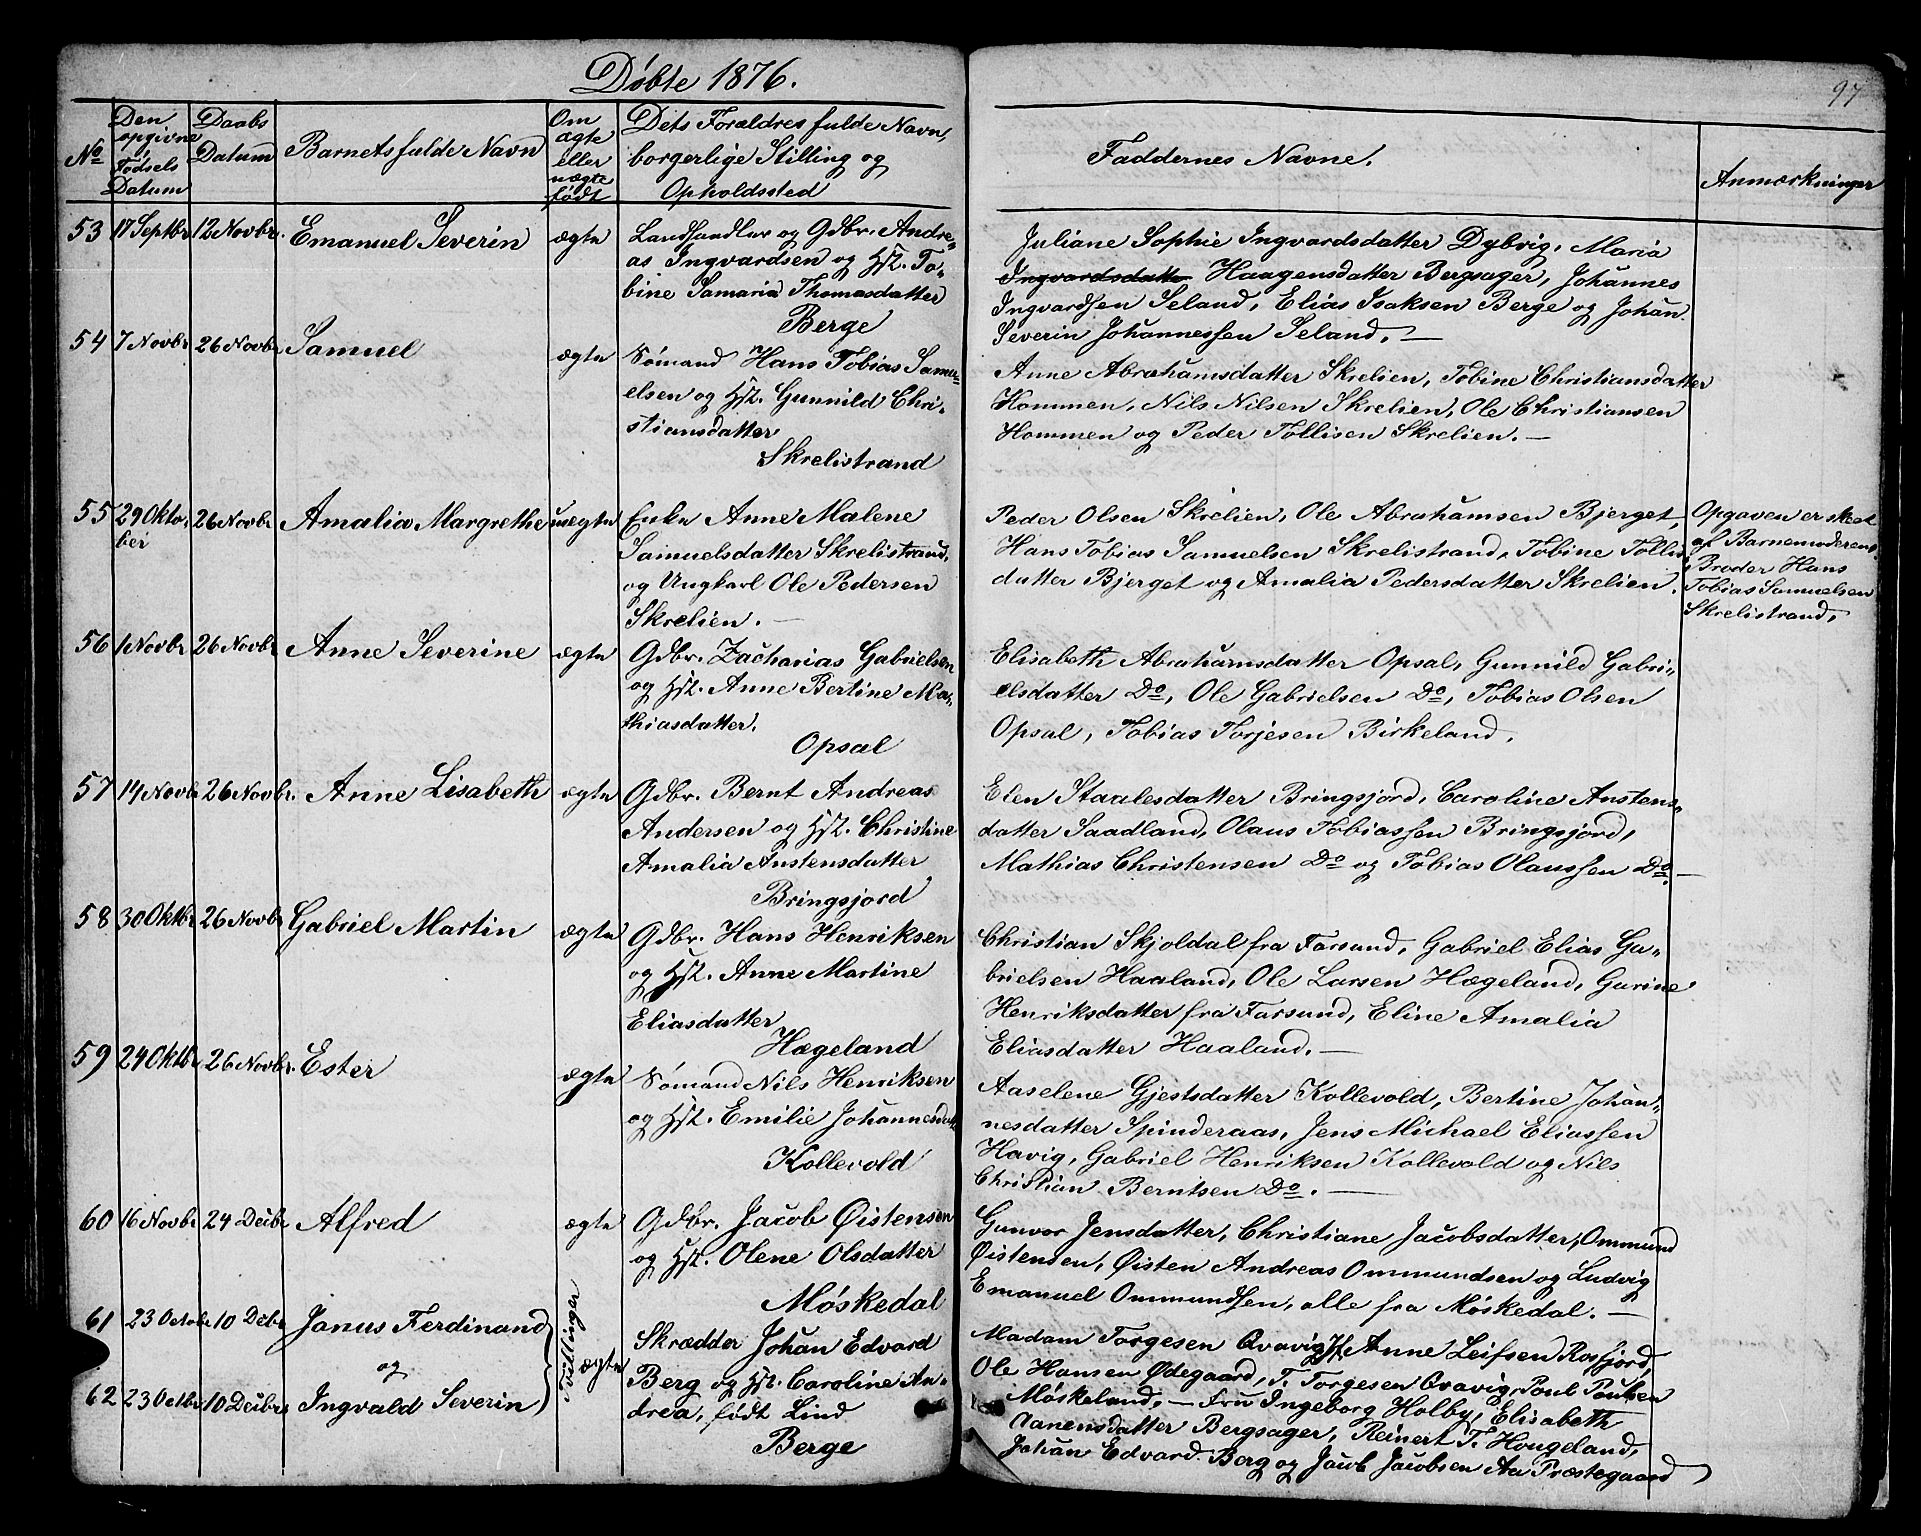 Døbte 1876.
97
No
Den opgivne Fødsels Datum
Daabs Datum
Barnets fulde Navn
Om ægte eller uægte født
Dets Forældres fulde Navn,
borgerlige Stilling og
Opholdssted
Faddernes Navne.
Anmærkninger
53 17 Septbr 12 Novbr. Emanuel Severin ægte Landhandler og Gdbr. Andre-
as Ingvardsen og Hst. To-
bine Samaria Thomasdatter
Berge
Juliane Sophie Ingvardsdatter Dybvig, Maria
Ingvardsdatt Haagensdatter Bergsager, Johannes
Ingvardsen Seland, Elias Isaksen Berge og Johan
Severin Johannessen Seland. —
54 7 Novbr 26 Novbr Samuel ægte Sømand Hans Tobias Samu-
elsen og Hst. Gunnild Chri-
stiansdatter
Skrelistrand
Anne Abrahamsdatter Skrelien, Tobine Christiansdatter
Hommen, Nils Nilsen Skrelien, Ole Christiansen
Hommen og Peder Tollisen Skrelien. —
55 29 Okto- 26 Novbr Amalia Margrethe uægte Enke Anne Malene
ber
Samuelsdatter Skrelistrand,
og Ungkarl Ole Pedersen
Skrelien. —
Peder Olsen Skrelien, Ole Abrahamsen Bjerget,
Hans Tobias Samuelsen Skrelistrand, Tobine Tollis
datter Bjerget og Amalia Pedersdatter Skrelien.
Opgaven er skeet
af Barnemoderens
Broder Hans
Tobias Samuelsen
Skrelistrand.
56 1 Novbr 26 Novbr Anne Severine ægte Gdbr. Zacharias Gabrielsen
og Hst. Anne Bertine Ma-
thiasdatter.
Opsal
Elisabeth Abrahamsdatter Opsal, Gunnild Gabri-
elsdatter Do, Ole Gabrielsen Do, Tobias Olsen
Opsal, Tobias Torjesen Birkeland.
57 14 Novbr 26 Novbr. Anne Lisabeth ægte Gdbr. Bernt Andreas
Andersen og Hst. Christine
Amalia Anstensdatter
Bringsjord
Elen Staalesdatter Bringsjord, Caroline Anstens-
datter Saadland, Olaus Tobiassen Bringsjord,
Mathias Christensen Do og Tobias Olaussen Do. —
58 30 Oktbr 26 Novbr Gabriel Martin ægte Gdbr. Hans Henriksen
og Hst. Anne Martine
Eliasdatter
Hægeland
Christian Skjoldal fra Farsund, Gabriel Elias Ga-
brielsen Haaland, Ole Larsen Hægeland, Gurine
Henriksdatter fra Farsund, Eline Amalia
Eliasdatter Haaland. —
59 24 Oktbr 26 Novbr. Ester ægte Sømand Nils Henriksen
og Hst. Emilie Johannesdatt
Kollevold
Aaselene Gjestsdatter Kollevold, Bertine Johan-
nesdatter Spinderaas, Jens Michael Eliassen
Havig, Gabriel Henriksen Kollevold og Nils
Christian Berntsen Do. —
60 16 Novbr 24 Decbr Alfred ægte Gdbr. Jacob Øistensen
og Hst. Olene Olsdatter
Møskedal
Gunvor Jensdatter, Christiane Jacobsdatter, Ommund
Øistensen, Øisten Andreas Ommundsen og Ludvig
Emanuel Ommundsen, alle fra Møskedal. —
61 23 Octobr 10 Decbr Janus Ferdinand
og
62 23 Octbr 10 Decbr Ingvald Severin
Tvillinger
ægte
Skrædder Johan Edvard
Berg og Hst. Caroline An-
drea, født Lind
Berge
Madam Torgesen Qvavig, Anne Leifsen Rosfjord,
Ole Hansen Ødegaard, T. Torgesen Qvavig, Poul Poulsen
Møskeland. — Fru Ingeborg Holby, Elisabeth
Aanensdatter Bergsager, Reinert T. Hougeland,
Johan Edvard Berg og Jacob Jacobsen Aa Præstegaard